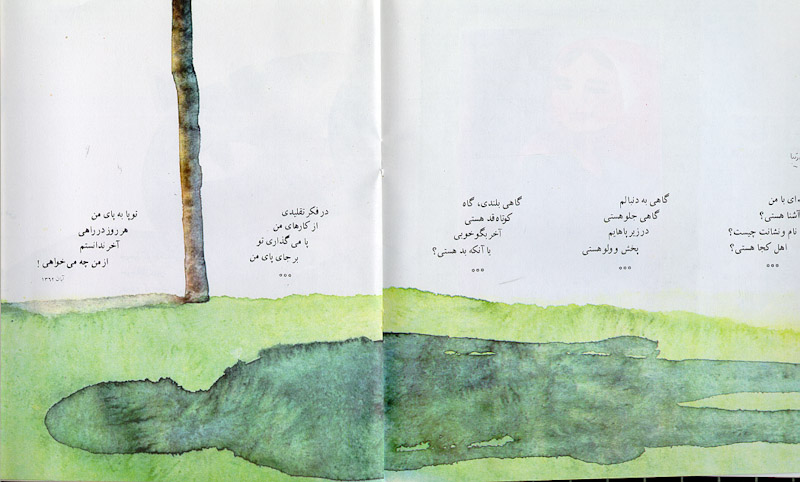 ای با من
آشنا هستی؟
نام و نشانت چیست؟
اهل کجا هستی؟
***
گاهی به دنبالم
گاهی جلو هستی
در زیر پاهایم
پخش و ولو هستی
***
گاهی بلندی، گاه
کوتاه قد هستی
آخر بگو خوبی
یا آنکه بد هستی؟
***
در فکر تقلیدی
از کارهای من
پا می گذاری تو
بر جای پای من
***
تو پا به پای من
هر روز در راهی
آخر ندانستم
از من چه می خواهی !
آبان ۱۳۶۲